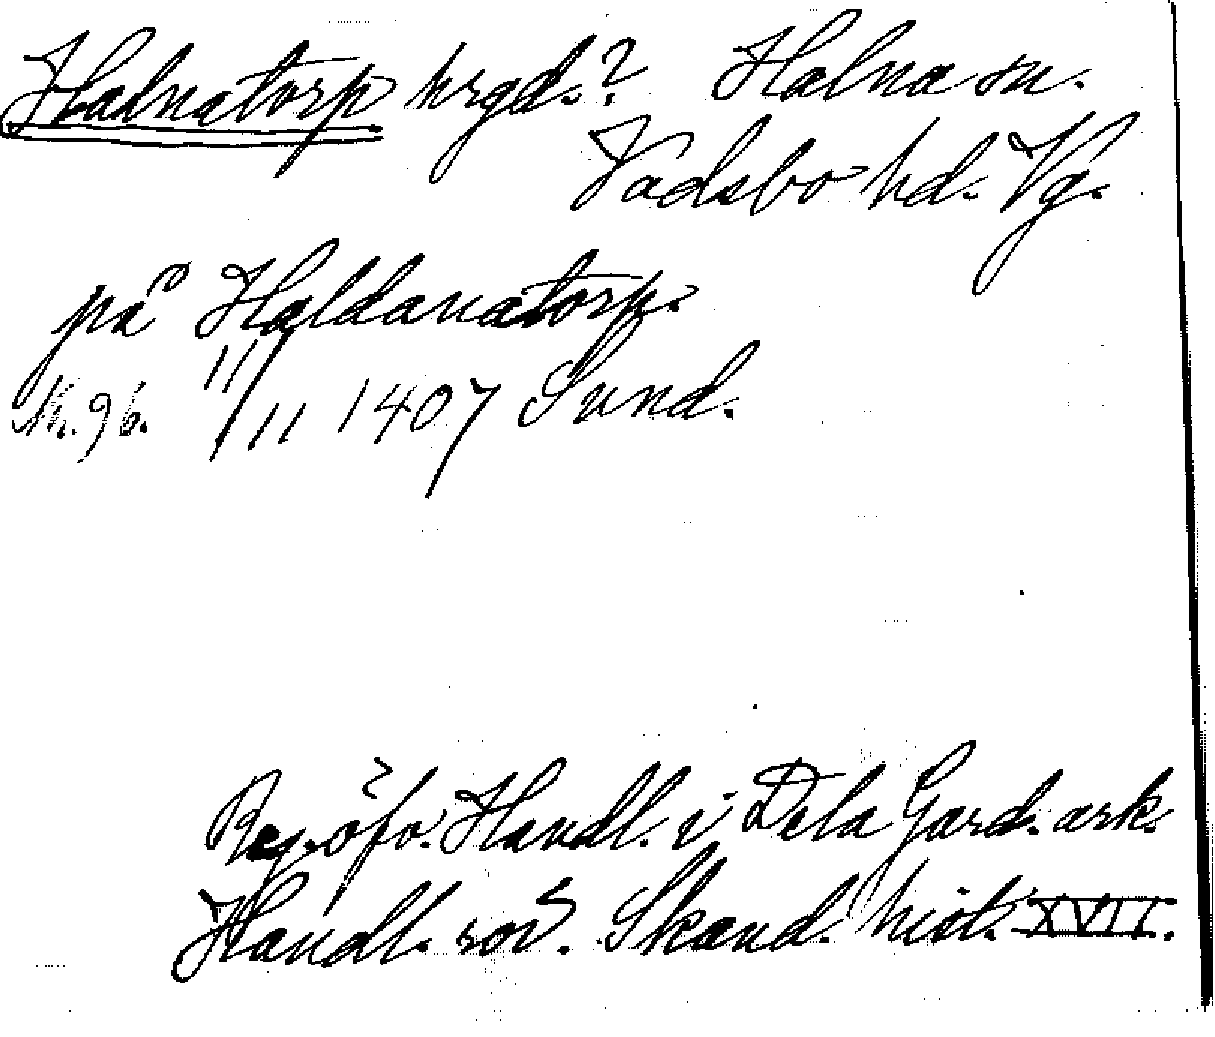 Halnatorp hrgd.? Halna sn.
Vadsbo hd. Vg.
på Haldanatorp.
Nr. 96. 11/11 1407 Sund.
Reg. öfv. Handl. i De la Gard. ark.
Handl. rör. Skand. hist. XVII.